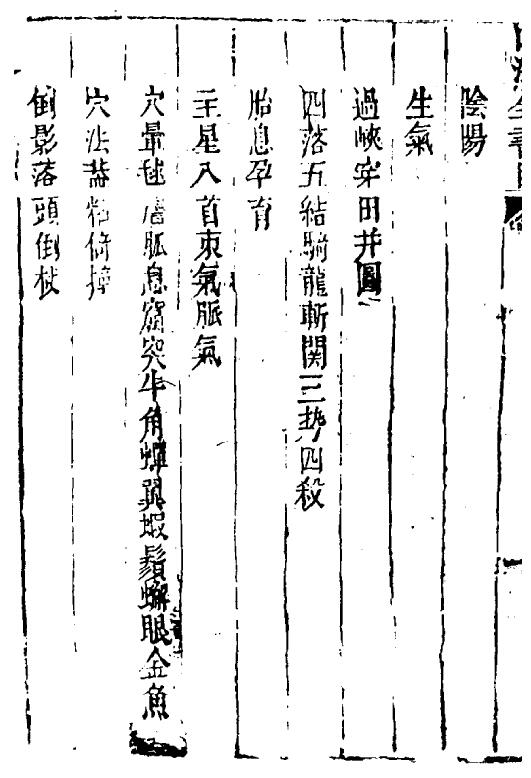 陰陽
生氣
過峽穿田并圖
四落五結騎龍斬関三勢四殺
胎息孕育
主星入首束氣脈氣
穴暈毬簷脈息窟突牛角蟬翼蝦鬚蠏眼金魚
穴法蓋粘倚撞
倒影落頭倒杖